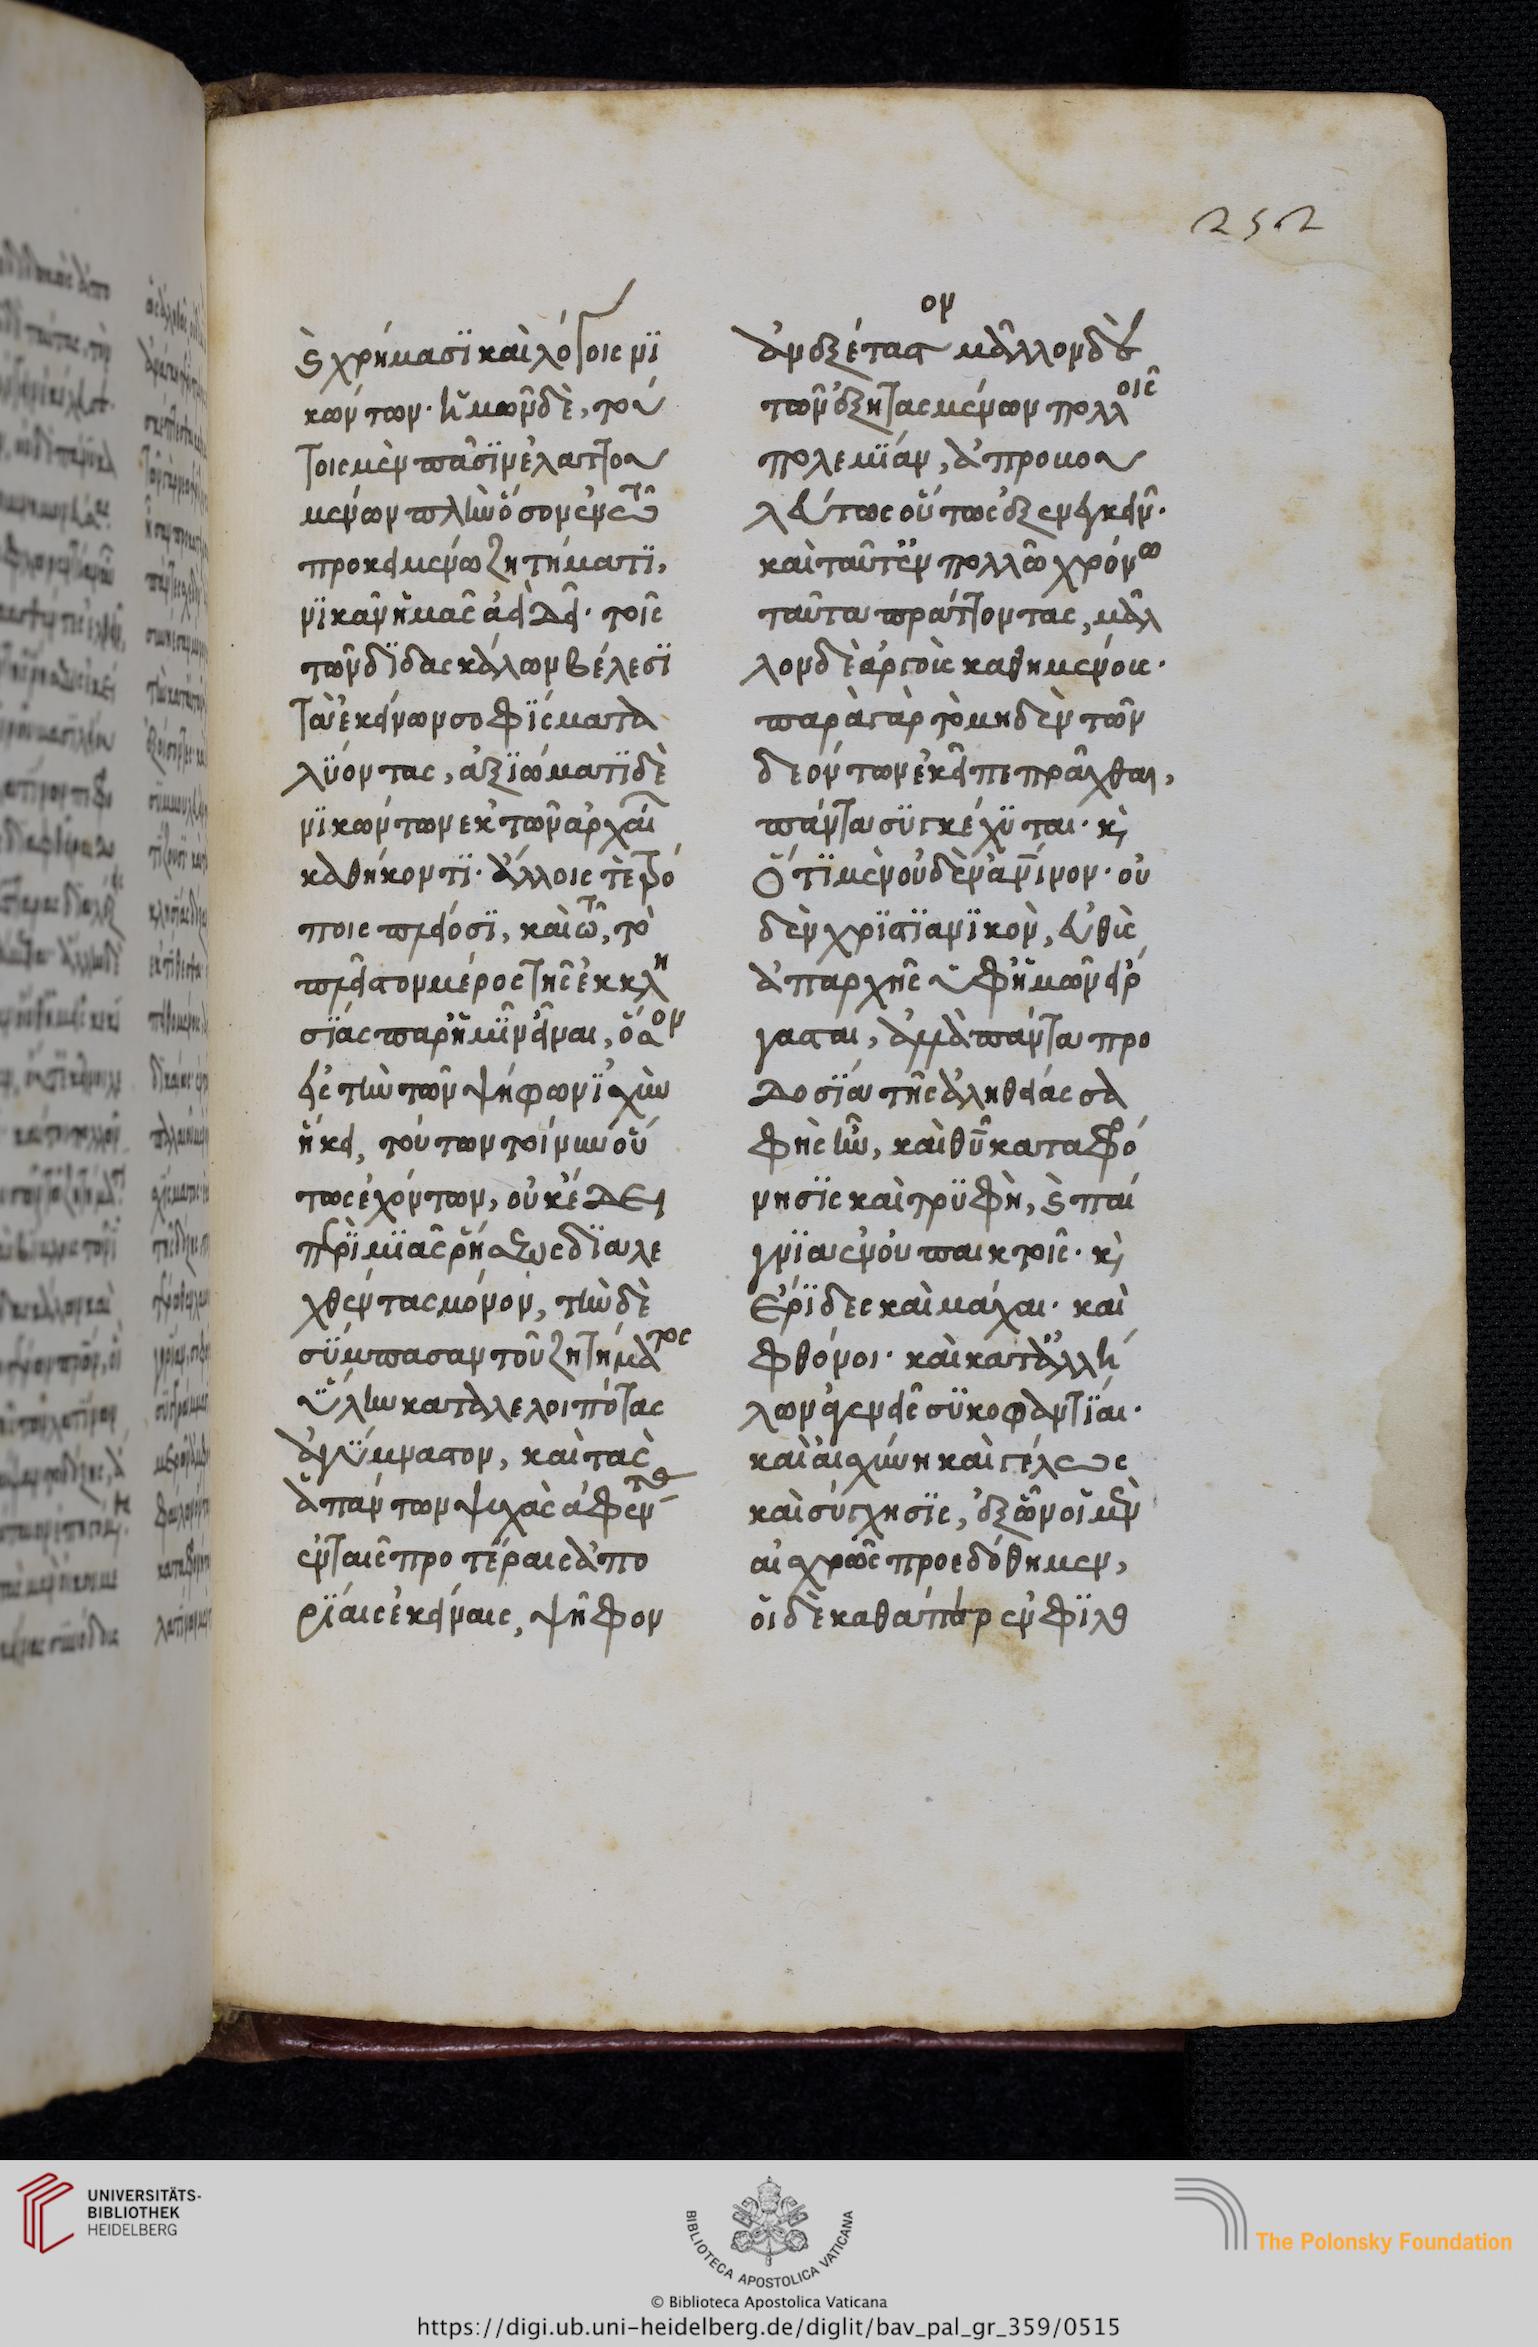 252
καὶ χρήμασι καὶ λόγοις νι
κώντων. ἡμῶν δὲ, τού
τοις μὲν πᾶσιν ἐλαττου
μένων πλὴν ὅσον ἐν τῷ
προκειμένῳ ζητήματι,
νικᾶν ἡμᾶς ἀεὶ δεῖ. τοῖς
τῶν διδασκάλων βέλεσι
τὰ ἐκείνων σοφίσματα
λύοντας, ἀξιώματι δὲ
νικώντων ἐκ τῶν ἀρχαῖ
καθήκοντι. ἄλλοις τὲ τρό
ποις πλείοσι, καὶ τῷ, τὸ
πλεῖστον μέρος τῆς ἐκκλη
σίας παρ' ἡμῖν εἶναι, ὅσον
εἰς τὴν τῶν ψήφων ἰσχὺν
ἧκε, τούτων τοίνυν οὕ
τως ἐχόντων, οὐκ ἔδει
περὶ μιᾶς ῥήσεως διαλε
χθέντας μόνον, τὴν δὲ
σύμπασαν τοῦ ζητήματος
ὕλην καταλελοιπότας
ἀγύμναστον, καὶ τὰς
ἁπάντων ψυχὰς ἀφέντας
ἐν ταῖς προτέραις ἀπο
ρίαις ἐκείναις, ψῆφον
ἀνεξέταστον μᾶλλον δ' εὖ
τῶν ἐξητασμένων πολλοῖς
πολεμίαν, ἀπροβου
λεύτως οὕτως ἐξενεγκεῖν.
καὶ ταῦτ' ἐν πολλῷ χρόνῳ
ταῦτα πράττοντας, μᾶλ
λον δὲ ἀργοῖς καθημένοις.
παρὰ γὰρ τὸ μηδὲν τῶν
δεόντων ἐκεῖ πεπρᾶχθαι,
πάντα συγκέχυται. καὶ
ὅτι μὲν οὐδὲν ἀνθρώπινον. οὐ
δὲν χριστιανικὸν, εὐθὺς
ἀπαρχῆς ὑφ' ἡμῶν εἴρ
γασται, ἀλλὰ πάντα προ
δοσία τῆς ἀληθείας σα
φὴς ἦν, καὶ θεοῦ καταφρό
νησις καὶ τρυφὴ, καὶ παι
γνία ἐν οὐ παικτοῖς. καὶ
ἔριδες καὶ μάχαι. καὶ
φθόνοι. καὶ κατ' ἀλλή
λων κενεῖς συκοφαντίαι.
καὶ αἰσχύνη καὶ γέλως
καὶ σύγχησις, ἐξ ὧν οἱ μὲν
αἰσχρῶς προεδόθημεν,
οἱ δὲ καθάπερ ἐν φίλου
UNIVERSITÄTS-
BIBLIOTHEK
HEIDELBERG
BIBLIOTECA APOSTOLICA VATICANA
The Polonsky Foundation
© Biblioteca Apostolica Vaticana
https://digi.ub.uni-heidelberg.de/diglit/bav_pal_gr_359/0515